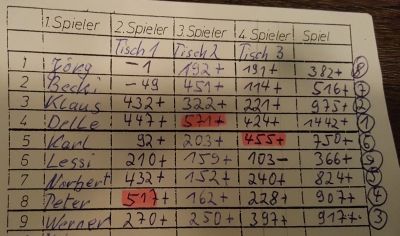 1.Spieler 2.Spieler 3.Spieler 4.Spieler Spiel
Tisch 1 Tisch 2 Tisch 3
1 Jörg -1 192+ 191+ 382+ 8
2 Becki -49 451+ 114+ 516+ 7
3 Klaus 432+ 322+ 221+ 975+ 2
4 Delle 447+ 571+ 424+ 1442+ 1
5 Karl 92+ 203+ 455+ 750+ 6
6 Lessi 210+ 159+ 103- 366+ 9
7 Norbert 432+ 152+ 240+ 824+
8 Peter 517+ 162+ 228+ 907+ 4
9 Werner 270+ 250+ 397+ 917+ 3